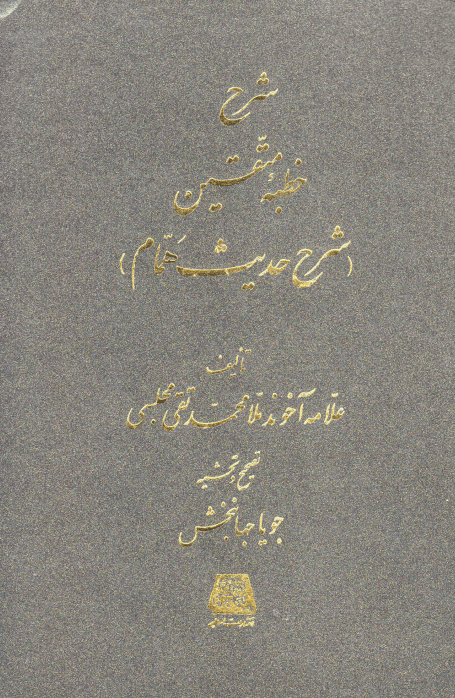 شرح
خطبهٔ متّقین
(شرح حدیث همّام)
تألیف
علّامه آخوند ملّا محمّد تقی مجلسی
تصحیح و تحشیه
جویا جهانبخش